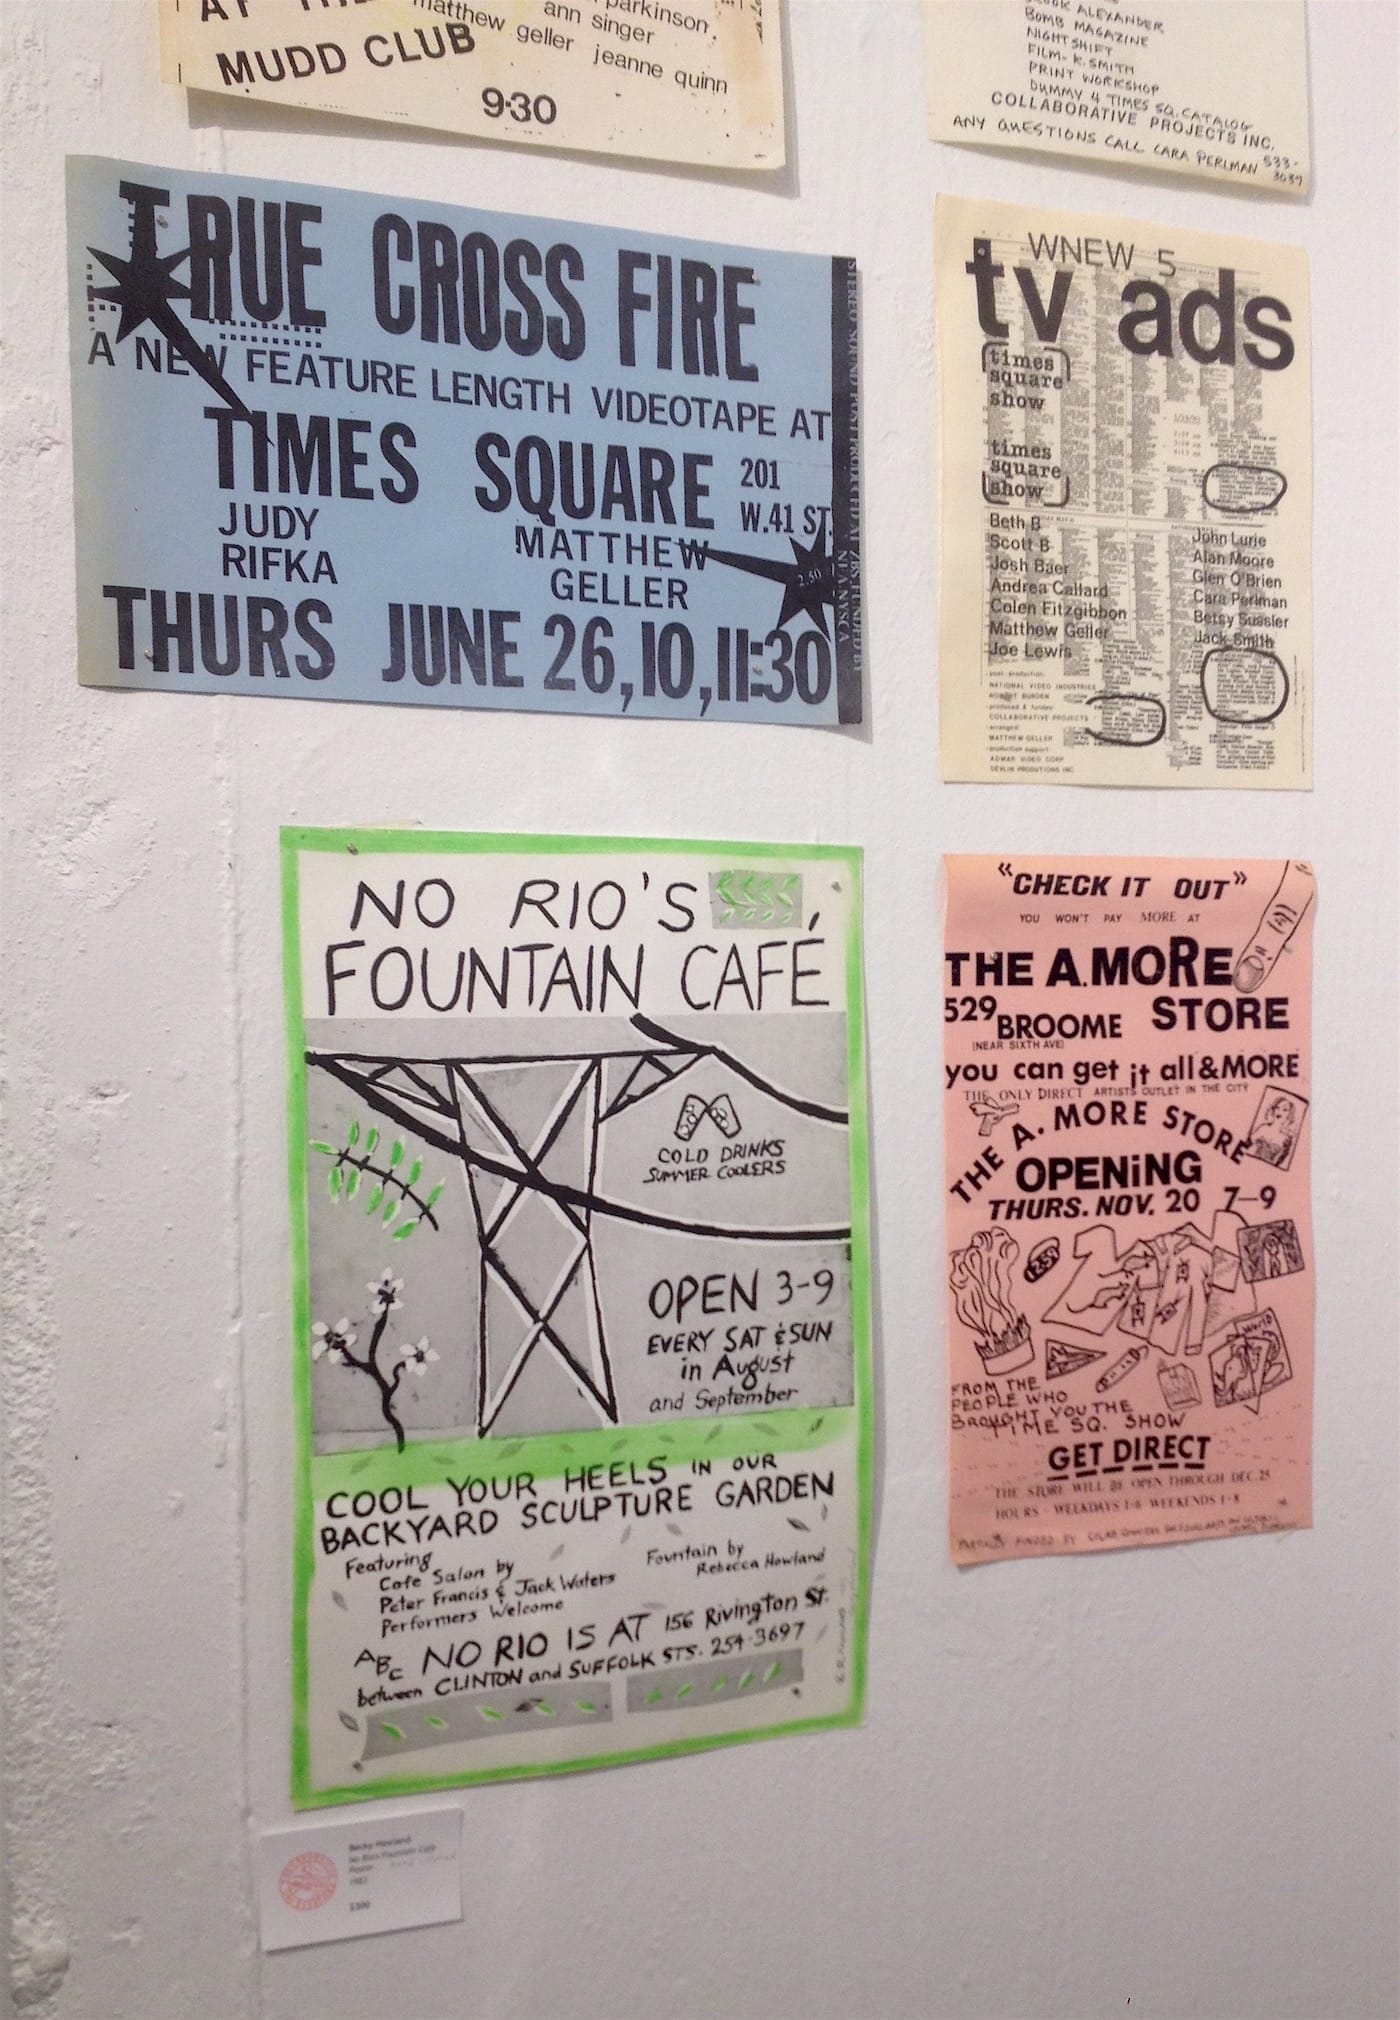 AT THE
MUDD CLUB
parkinson,
ann singer
matthew geller jeanne quinn
9:30
BROOK ALEXANDER
BOMB MAGAZINE
NIGHTSHIFT
FILM- K. SMITH
PRINT WORKSHOP
DUMMY 4 TIMES SQ. CATALOG
COLLABORATIVE PROJECTS INC.
ANY QUESTIONS CALL CARA PERLMAN 533-
3039
TRUE CROSS FIRE
A NEW FEATURE LENGTH VIDEOTAPE AT
TIMES SQUARE 201
W.41 ST.
JUDY
RIFKA
MATTHEW
GELLER
2.50
THURS JUNE 26,10,11:30
WNEW 5
tv ads
times
square
show
times
square
show
Beth B
Scott B
Josh Baer
Andrea Callard
Colen Fitzgibbon
Matthew Geller
Joe Lewis
John Lurie
Alan Moore
Glen O'Brien
Cara Perlman
Betsy Sussler
Jack Smith
post-production:
NATIONAL VIDEO INDUSTRIES
ROBERT BURDEN
produced & funded
COLLABORATIVE PROJECTS
arranged
MATTHEW GELLER
production support:
ADMAR VIDEO CORP
DEVLIN PRODUTIONS INC
NO RIO'S
FOUNTAIN CAFÉ
COLD DRINKS
SUMMER COOLERS
OPEN 3-9
EVERY SAT & SUN
in August
and September
COOL YOUR HEELS IN OUR
BACKYARD SCULPTURE GARDEN
Featuring
Cafe Salon by
Peter Francis & Jack Waters
Performers Welcome
Fountain by
Rebecca Howland
ABC NO RIO IS AT 156 Rivington St.
between CLINTON and SUFFOLK STS. 254-3697
"CHECK IT OUT"
YOU WON'T PAY MORE AT
THE A.MORE
529 BROOME STORE
(NEAR SIXTH AVE)
you can get it all & MORE
THE ONLY DIRECT ARTISTS OUTLET IN THE CITY
THE A. MORE STORE
OPENiNG
THURS. NOV. 20 7-9
1259
World
FROM THE
PEOPLE WHO
BROUGHT YOU THE
TIME SQ. SHOW
GET DIRECT
THE STORE WILL BE OPEN THROUGH DEC.25
HOURS - WEEKDAYS 1-6 WEEKENDS 1-8
Becky Howland
No Rios Fountain Cafe
Poster
$300